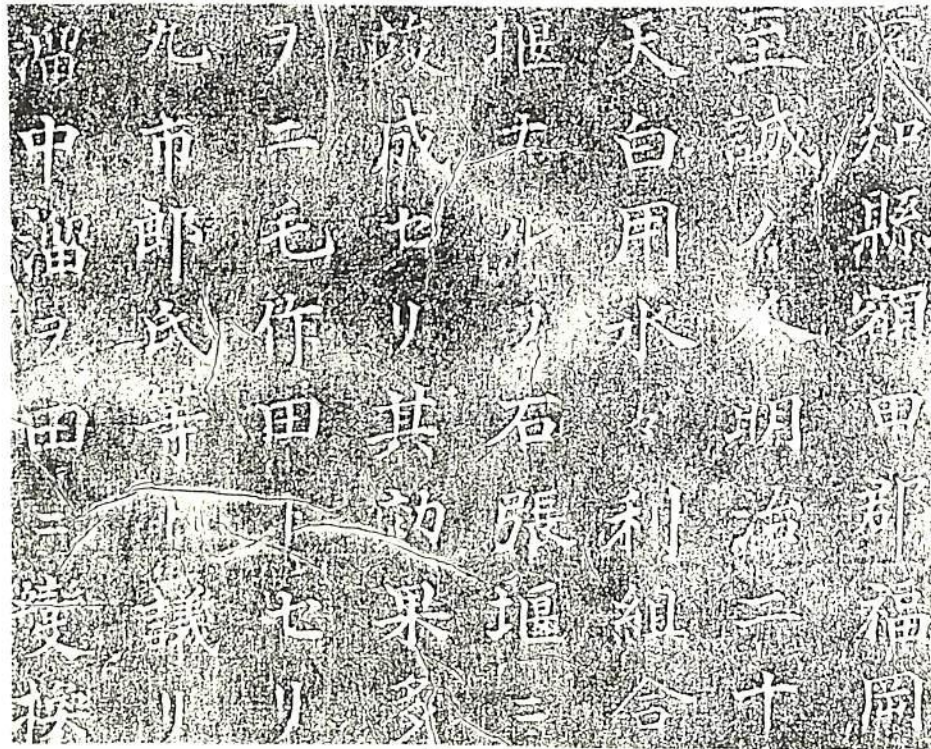 愛知縣額田郡福岡
至誠ノ人明治二十
天白用水々利組合
堰ナルヲ石張堰ニ
竣成セリ其効果多
ヲ二毛作田トセリ
九市郎氏等ト議リ
溜中溜ヲ田ニ変換